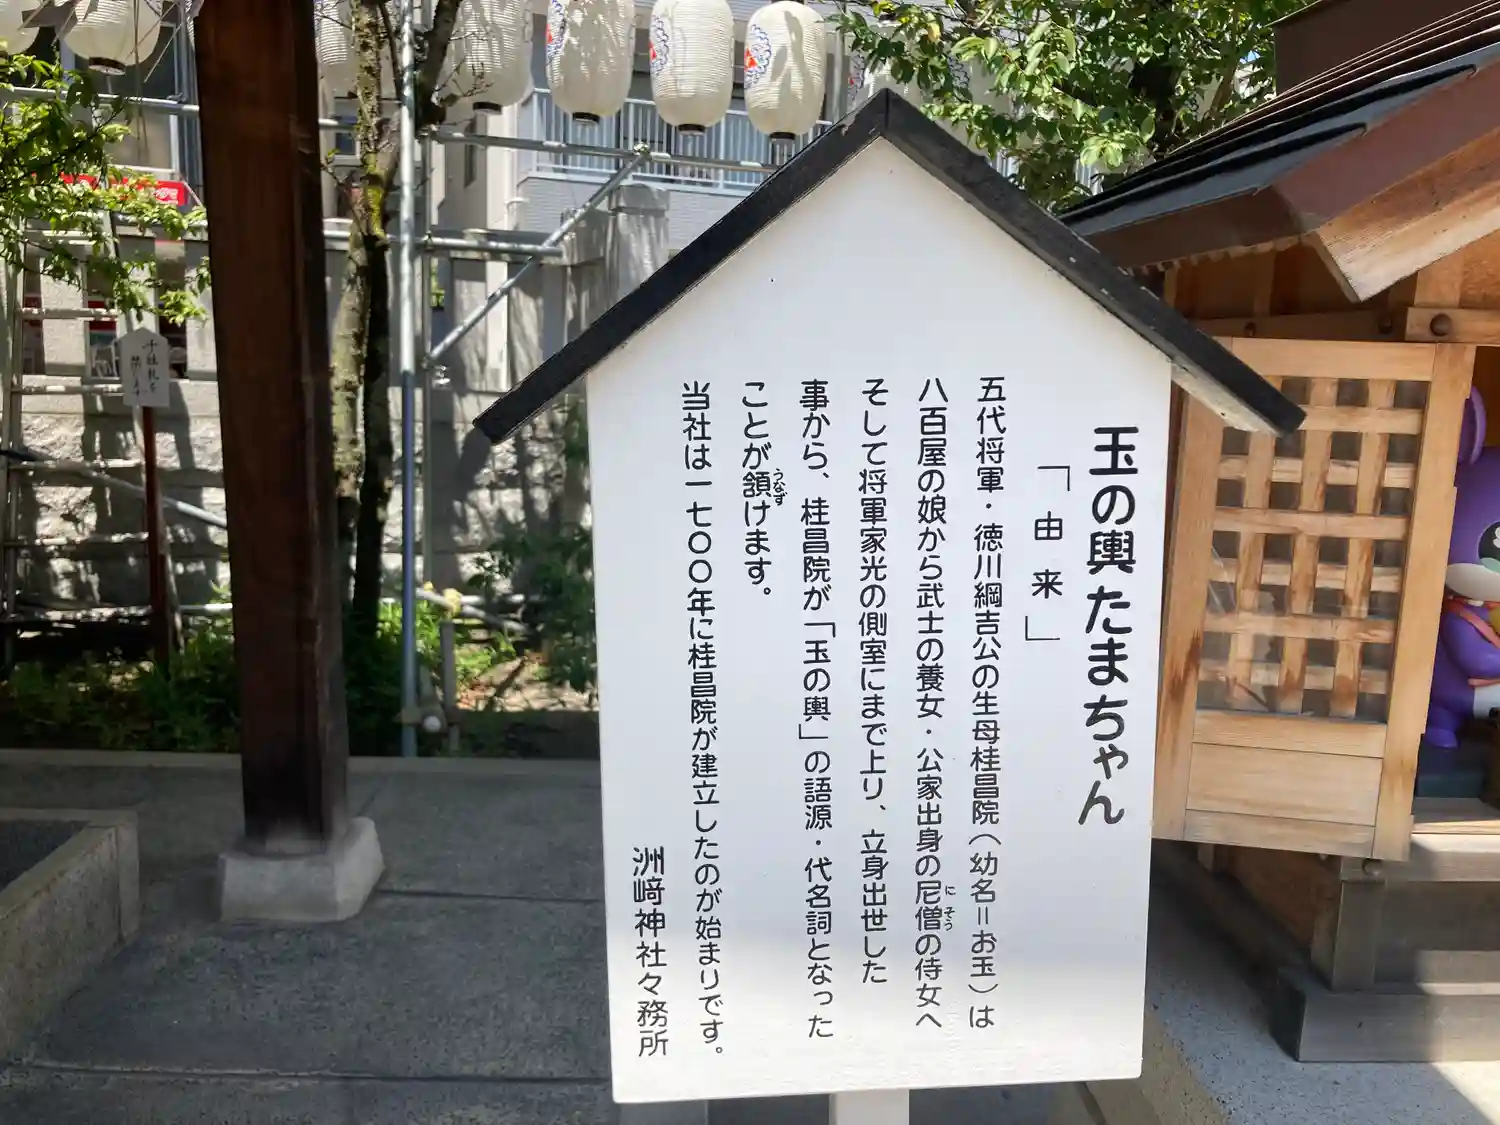 玉の輿たまちゃん
「由来」
五代将軍・徳川綱吉公の生母桂昌院（幼名＝お玉）は
八百屋の娘から武士の養女・公家出身の尼僧の侍女へ
にそう
そして将軍家光の側室にまで上り、立身出世した
事から、桂昌院が「玉の輿」の語源・代名詞となった
ことが頷けます。
うなず
当社は一七〇〇年に桂昌院が建立したのが始まりです。
洲﨑神社々務所